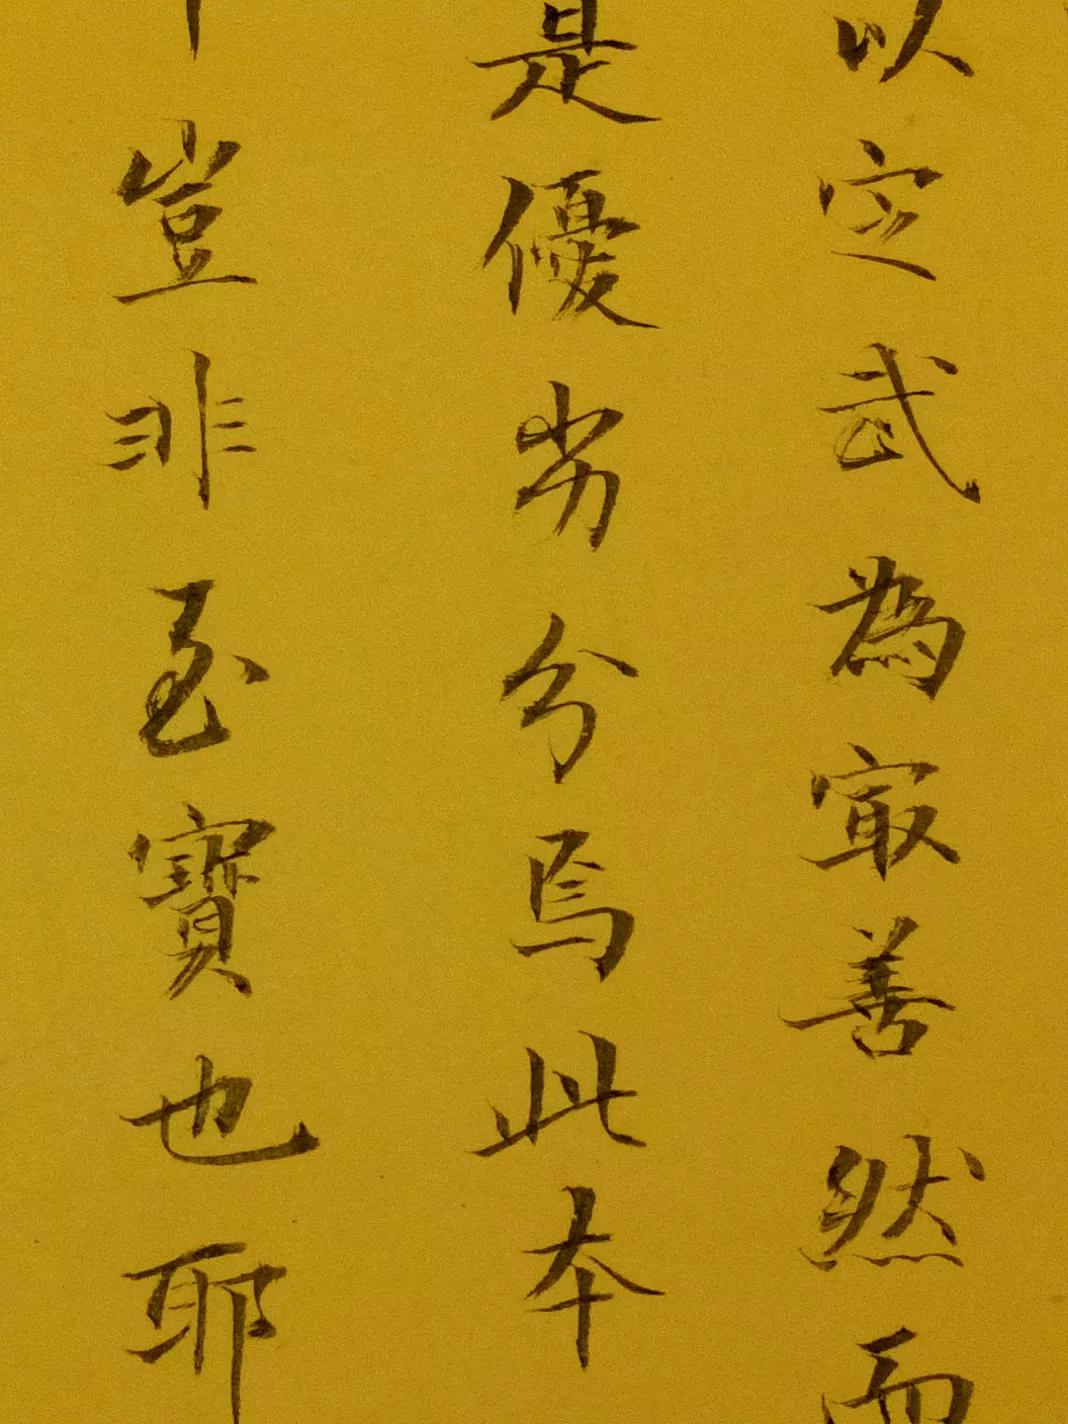 以定武為冣善然而
是優劣分焉此本
豈非至寶也耶